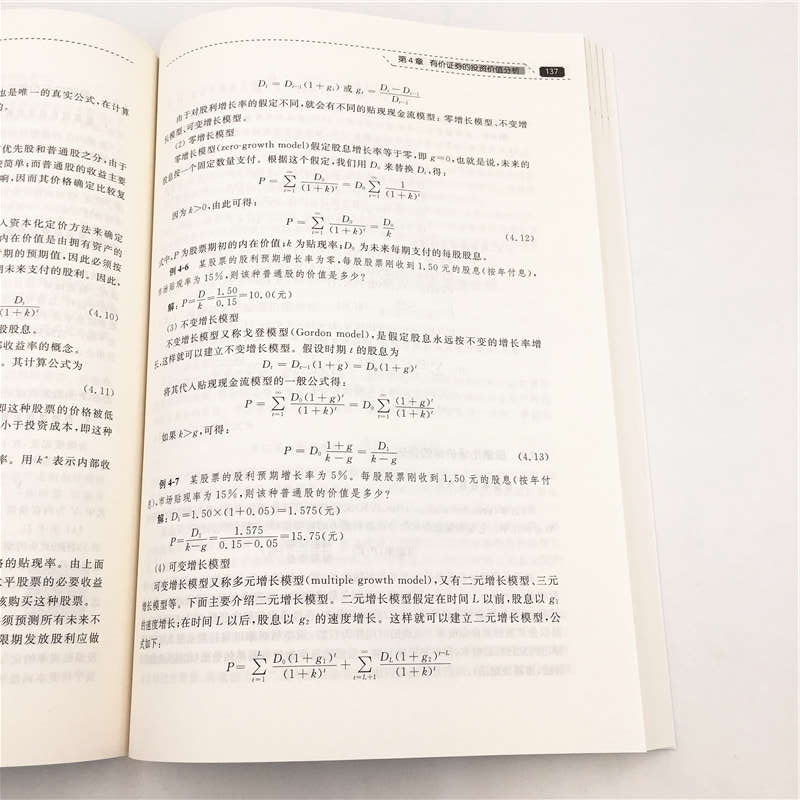 也是唯一的真实公式,在计算
的。
优先股和普通股之分,由于
简单;而普通股的收益主要
响,因而其价格确定比较复
人资本化定价方法来确定
内在价值是由拥有资产的
期的预期值,因此必须按
期未来支付的股利。因此、
D_t/(1+k)^t (4.10)
股股息。
部收益率的概念。
。其计算公式为
(4.11)
即这种股票的价格被低
小于投资成本,即这种
率。用 k* 表示内部收
格的贴现率。由上面
水平股票的必要收益
该购买这种股票。
须预测所有未来不
限期发放股利应做
第4章 有价证券的投资价值分析 137
D_t = D_{t-1}(1+g_t) 或 g_t = (D_t-D_{t-1})/D_{t-1}
由于对股利增长率的假定不同,就会有不同的贴现现金流模型:零增长模型、不变增
长模型、可变增长模型。
(2) 零增长模型
零增长模型(zero-growth model)假定股息增长率等于零,即 g=0,也就是说,未来的
股息按一个固定数量支付。根据这个假定,我们用 D_0 来替换 D_t,得:
P = ∑_{t=1}^{∞} D_0/(1+k)^t = D_0 ∑_{t=1}^{∞} 1/(1+k)^t
因为 k>0,由此可得:
P = ∑_{t=1}^{∞} D_0/(1+k)^t = D_0/k (4.12)
式中,P 为股票期初的内在价值;k 为贴现率;D_0 为未来每期支付的每股股息。
例 4-6 某股票的股利预期增长率为零,每股股票刚收到 1.50 元的股息(按年付息),
市场贴现率为 15%,则该种普通股的价值是多少?
解:P=D/k=1.50/0.15=10.0(元)
(3) 不变增长模型
不变增长模型又称戈登模型(Gordon model),是假定股息永远按不变的增长率增
长,这样就可以建立不变增长模型。假设时期 t 的股息为
D_t = D_{t-1}(1+g) = D_0(1+g)^t
将其代入贴现现金流模型的一般公式得:
P = ∑_{t=1}^{∞} D_0(1+g)^t/(1+k)^t = D_0 ∑_{t=1}^{∞} (1+g)^t/(1+k)^t
如果 k>g,可得:
P = D_0 (1+g)/(k-g) = D_1/(k-g) (4.13)
例 4-7 某股票的股利预期增长率为 5%。每股股票刚收到 1.50 元的股息(按年付
息),市场贴现率为 15%,则该种普通股的价值是多少?
解:D_1=1.50×(1+0.05)=1.575(元)
P=D_1/(k-g)=1.575/(0.15-0.05)=15.75(元)
(4) 可变增长模型
可变增长模型又称多元增长模型(multiple growth model),又有二元增长模型、三元
增长模型等。下面主要介绍二元增长模型。二元增长模型假定在时间 L 以前,股息以 g_1
的速度增长;在时间 L 以后,股息以 g_2 的速度增长。这样就可以建立二元增长模型,公
式如下:
P= ∑_{t=1}^{L} D_0(1+g_1)^t/(1+k)^t + ∑_{t=L+1}^{∞} D_L(1+g_2)^{t-L}/(1+k)^t